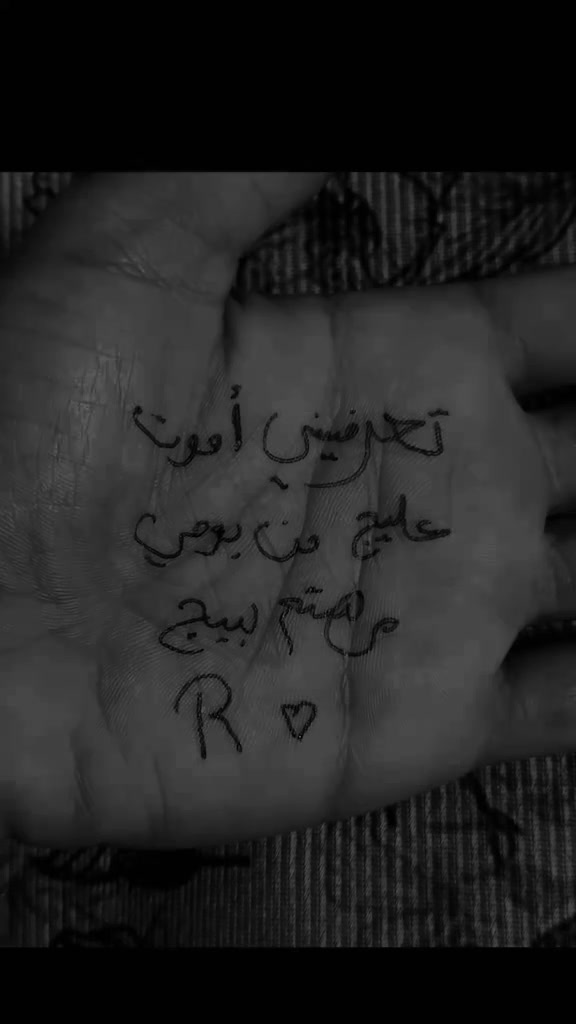 تعرفيني أموت
عليج من يومي
مهتم بيج
R ♡